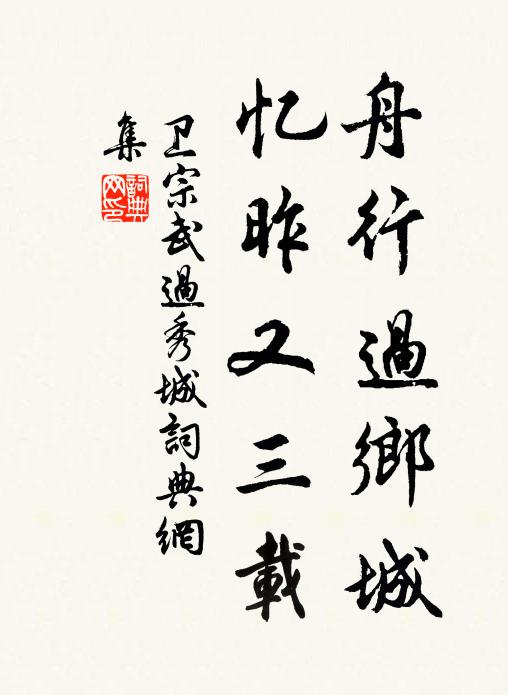 舟行過鄉城
忆昨又三載
卫宗武過秀城詞典網
集
詞典网印